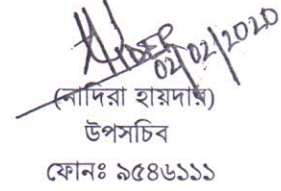 02/02/2020
(নাদিরা হায়দার)
উপসচিব
ফোনঃ ৯৫৪৬১১১